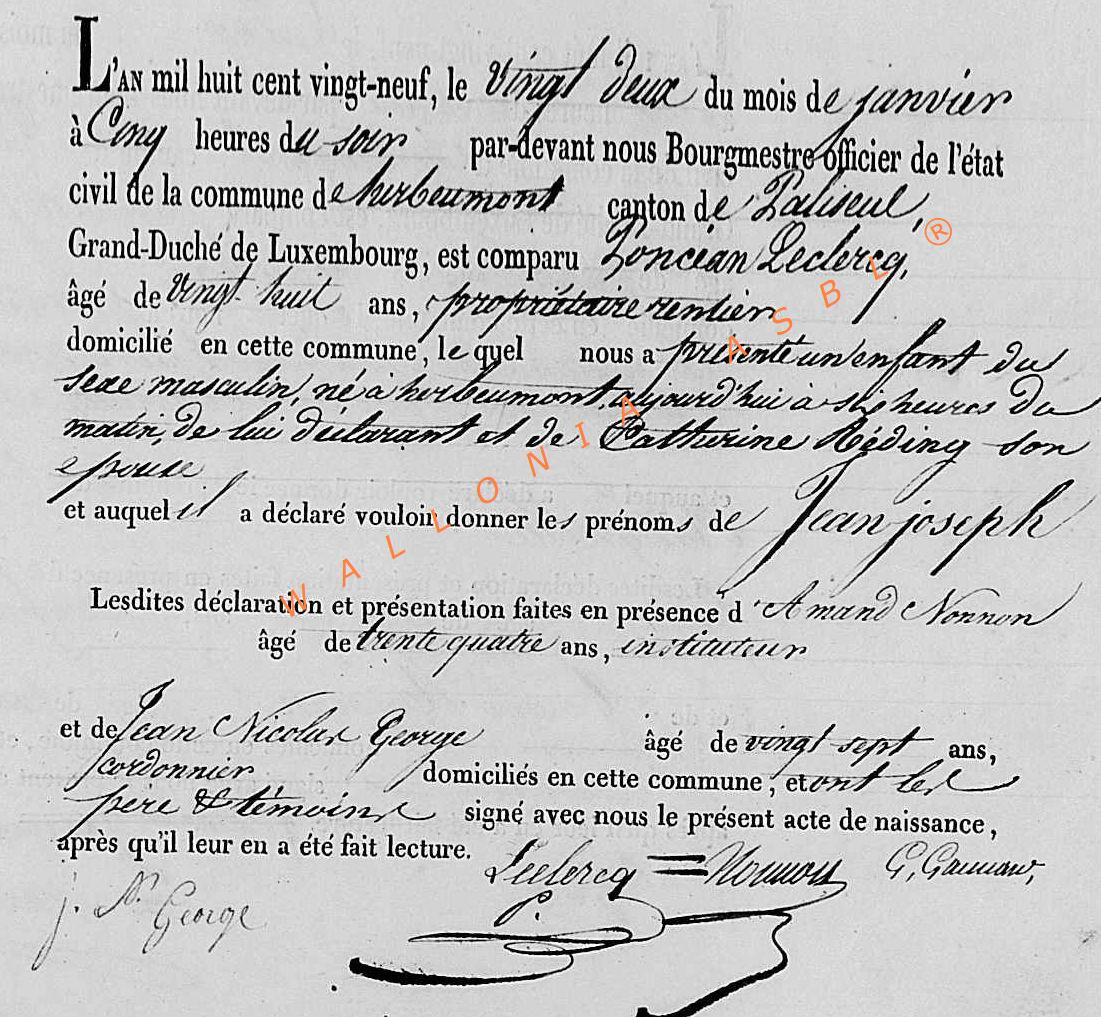 L'AN mil huit cent vingt-neuf, le vingt deux du mois de janvier
à Cinq heures du soir par-devant nous Bourgmestre officier de l'état
civil de la commune de herbeumont canton de Paliseul,
Grand-Duché de Luxembourg, est comparu Poncéan Leclercq,
âgé de vingt huit ans, propriétaire rentier
domicilié en cette commune, le quel nous a présenté un enfant du
sexe masculin, né à herbeumont, aujourd'hui à six heures du
matin, de lui déclarant et de Catherine Réding son
epouse
et auquel il a déclaré vouloir donner les prénoms de Jean joseph
Lesdites déclaration et présentation faites en présence d'Amand Nonnon
âgé de trente quatre ans, instituteur
et de Jean Nicolas George âgé de vingt sept ans,
cordonnier domiciliés en cette commune, et ont les
père & témoins signé avec nous le présent acte de naissance,
après qu'il leur en a été fait lecture.
Leclercq = Nonnon
P.
j. N. George
WALLONIA ASBL ®